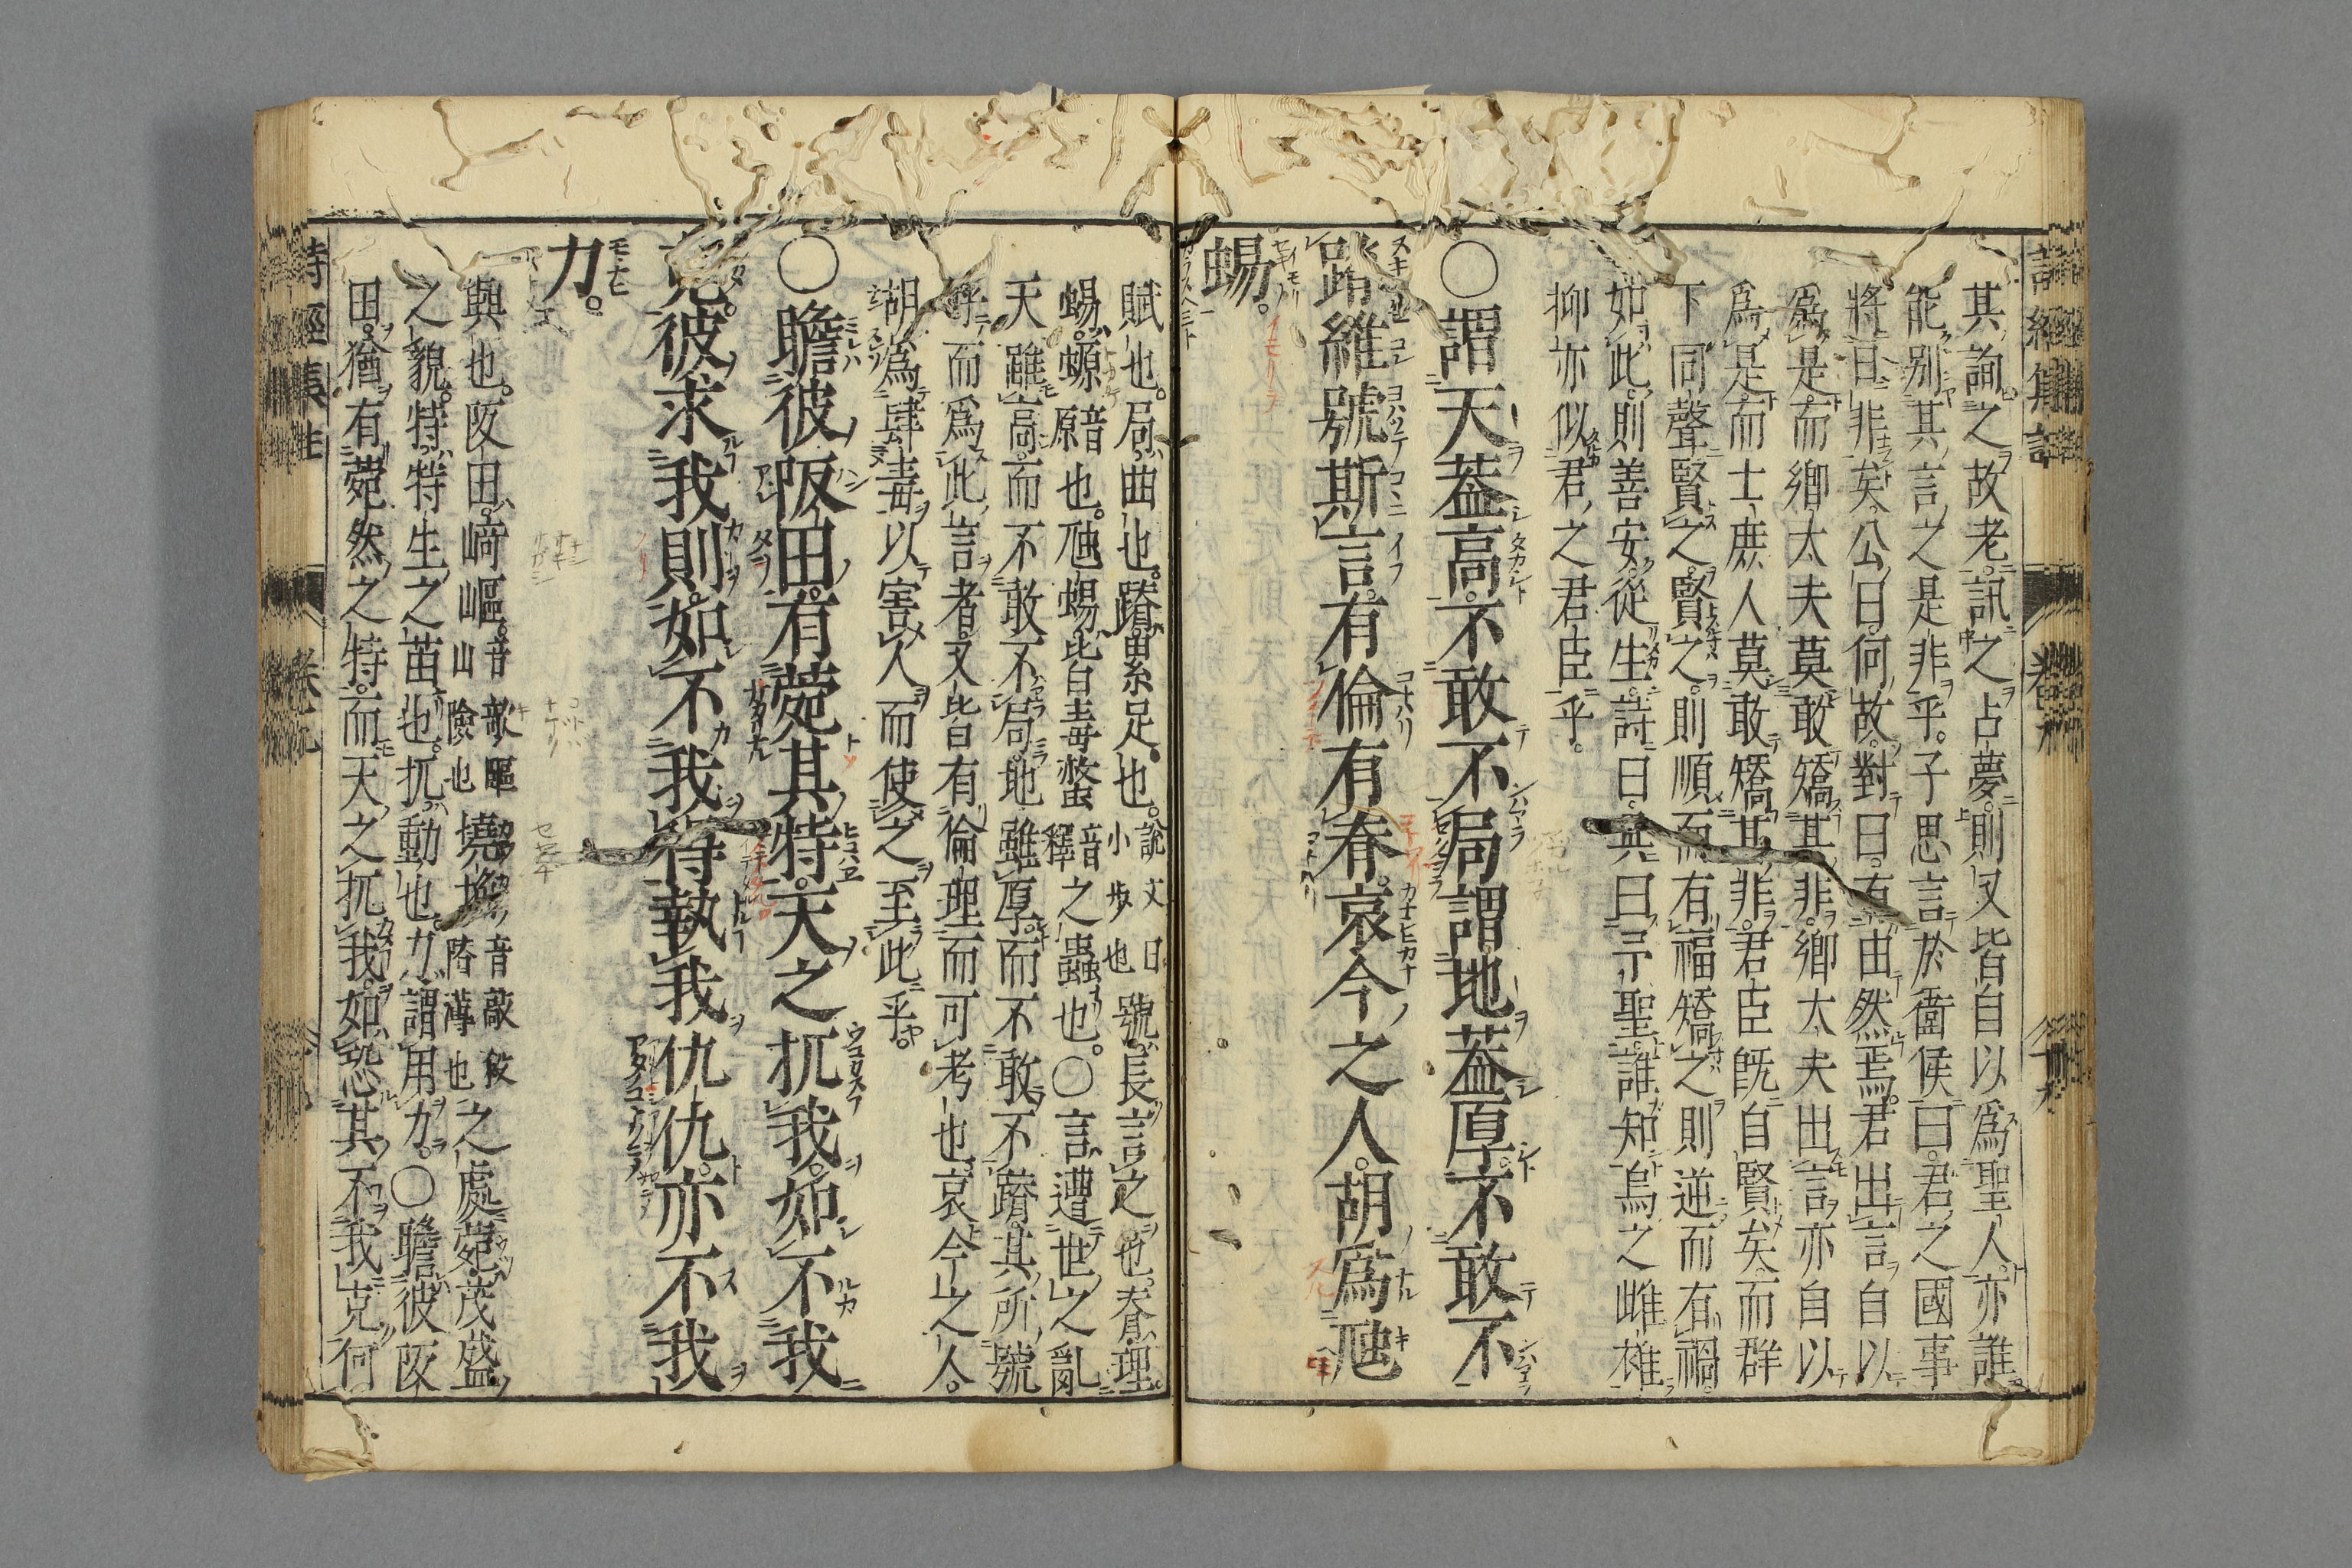 其詢之故老訊之占夢則又皆自以爲聖人亦誰
能別其言之是非乎。子思言於衞侯曰。君之國事
將日非矣。公曰。何故。對曰。有由然焉。君出言自以
爲是。而卿大夫莫敢矯其非。卿大夫出言亦自以
爲是。而士庶人莫敢矯其非。君臣既自賢矣。而群
下同聲賢之。賢之。則順而有福。矯之則逆而有禍。
如此。則善安從生。詩曰。具曰予聖。誰知烏之雌雄
抑亦似君之君臣乎。
○謂天蓋高。不敢不局。謂地蓋厚。不敢不
蹐。維號斯言。有倫有脊。哀今之人。胡爲虺
蜴。
賦也。局。曲也。蹐。累足也。說文曰小步也號。長言之也。脊。理。
蜴。螈音原也。虺蜴。皆毒螫音釋之蟲也。○言遭世之亂
天雖高。而不敢不局。地雖厚。而不敢不蹐。其所號
呼而爲此言者。又皆有倫理而可考也。哀今之人。
胡爲肆毒以害人。而使之至此乎。
○瞻彼阪田。有菀其特。天之扤我。如不我
克。彼求我則。如不我得。執我仇仇。亦不我
力。
興也。阪田。崎嶇音欹區山險也墝埆音敲殼瘠薄也之處。菀。茂盛
之貌。特。特生之苗也。扤。動也。力。謂用力。○瞻彼阪
田。猶有菀然之特。而天之扤我。如恐其不我克。何
詩經集註
卷五